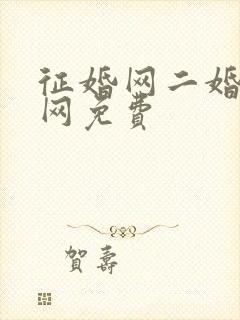 征婚网二婚
网免费
賀壽